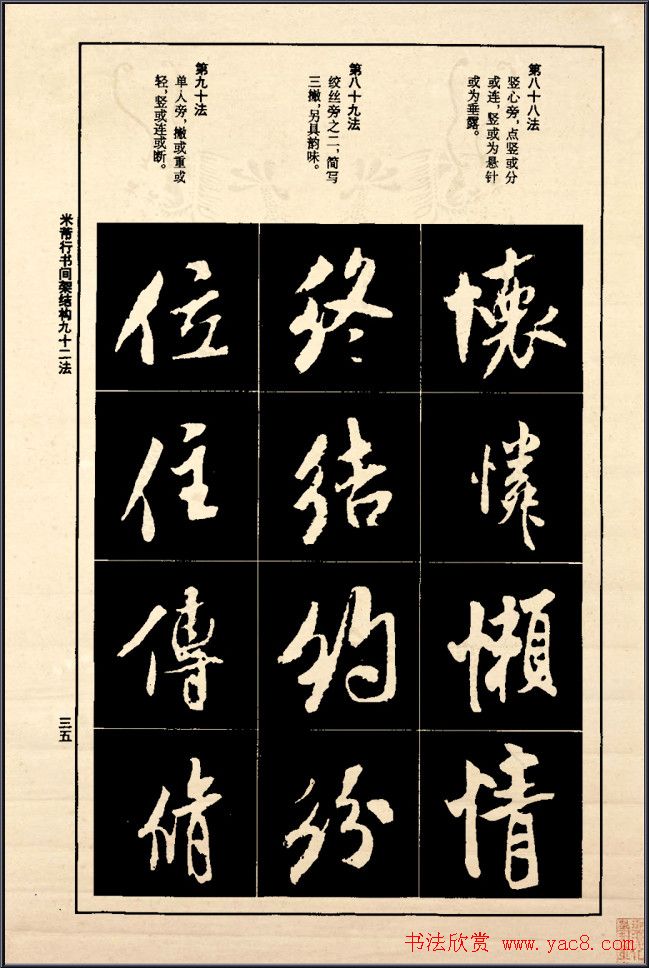 第八十八法
竖心旁，点竖或分
或连，竖或为悬针
或为垂露。
第八十九法
绞丝旁之二，简写
三撇，另具韵味。
第九十法
单人旁，撇或重或
轻，竖或连或断。
懷
憐
懶
情
終
結
約
紛
位
住
傳
脩
米芾行书间架结构九十二法
三五
书法欣赏 www.yac8.com